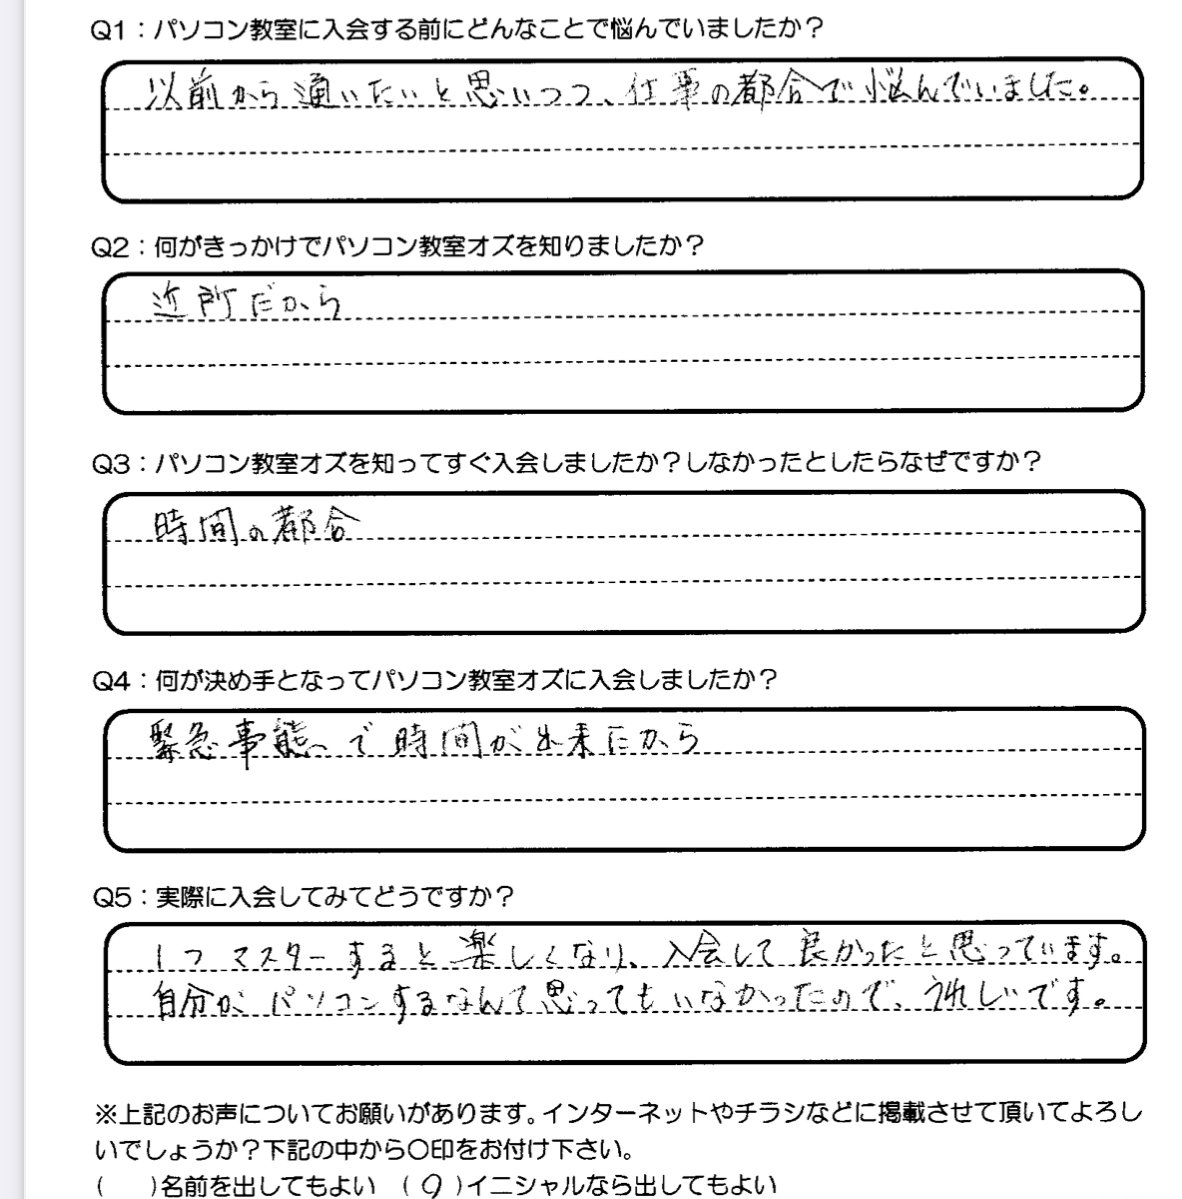 Q1：パソコン教室に入会する前にどんなことで悩んでいましたか？
以前から通いたいと思いつつ、仕事の都合で悩んでいました。
Q2：何がきっかけでパソコン教室オズを知りましたか？
近所だから
Q3：パソコン教室オズを知ってすぐ入会しましたか？しなかったとしたらなぜですか？
時間の都合
Q4：何が決め手となってパソコン教室オズに入会しましたか？
緊急事態で時間が出来たから
Q5：実際に入会してみてどうですか？
1つマスターすると楽しくなり、入会して良かったと思っています。
自分がパソコンするなんて思ってもいなかったので、うれしいです。
※上記のお声についてお願いがあります。インターネットやチラシなどに掲載させて頂いてよろし
いでしょうか？下記の中から〇印をお付け下さい。
(　)名前を出してもよい　(〇)イニシャルなら出してもよい